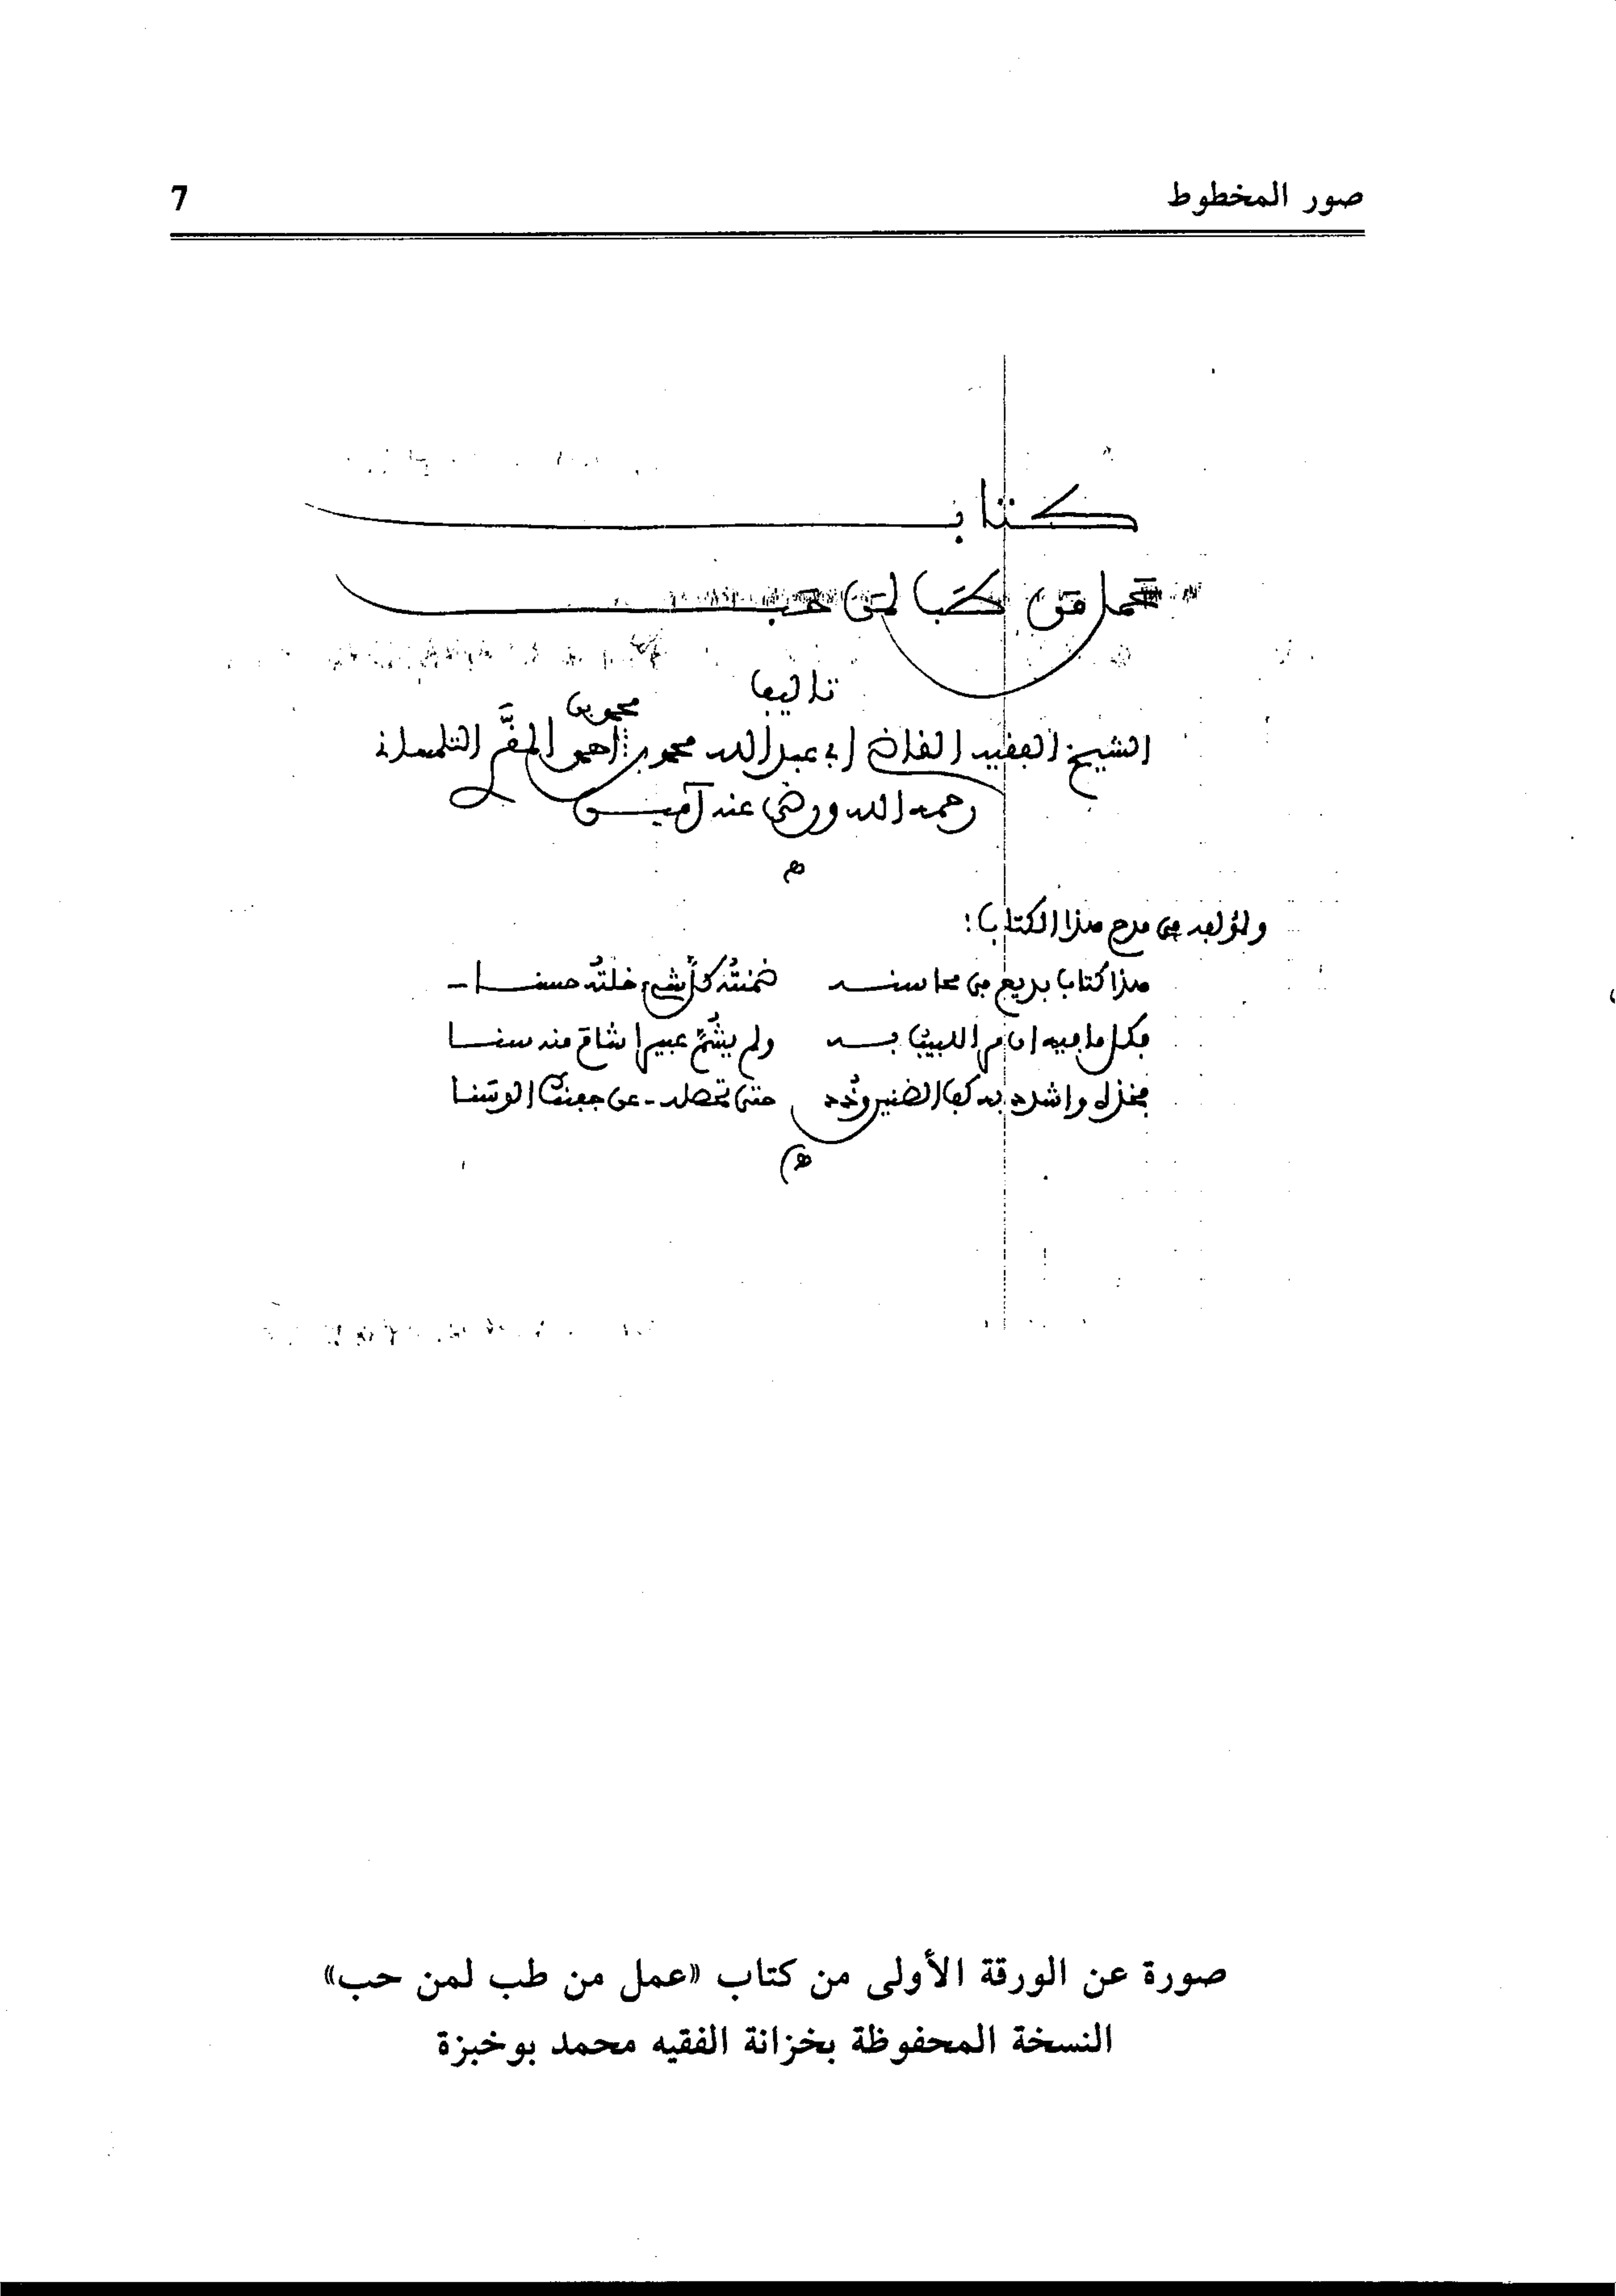 صور المخطوط 7
كتاب
عمل من طب لمن حب
تاليف
الشيخ الفقيه القاضي ابي عبد الله محمد بن محمد بن احمد المقَّري التلمساني
رحمه الله ورضي عنه آميـن
ولمؤلفه في مدح هذا الكتاب:
هذا كتاب بديع في محاسنه ضمنتُه كلَّ شيء خلتُه حسنا
فكل ما فيه ان مر اللبيب به ولم يشُمَّ عبيرا شام منه سنا
فخذه واشدد به كف الضنين وذُد حتى تحصله عن جفنك الوسَنا
صورة عن الورقة الأولى من كتاب «عمل من طب لمن حب»
النسخة المحفوظة بخزانة الفقيه محمد بوخبزة